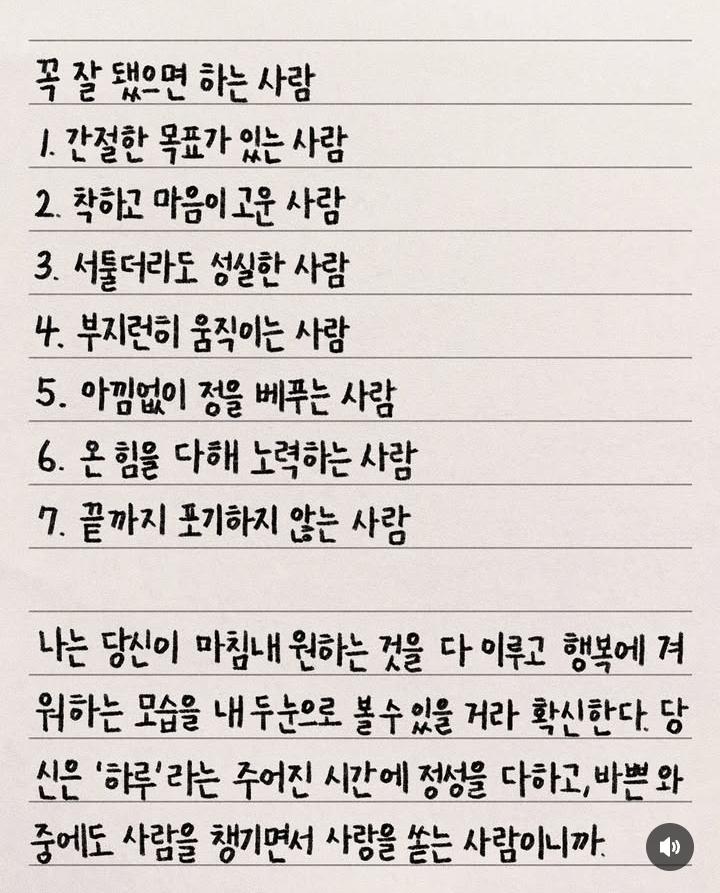 꼭 잘 됐으면 하는 사람
1. 간절한 목표가 있는 사람
2. 착하고 마음이 고운 사람
3. 서툴더라도 성실한 사람
4. 부지런히 움직이는 사람
5. 아낌없이 정을 베푸는 사람
6. 온 힘을 다해 노력하는 사람
7. 끝까지 포기하지 않는 사람
나는 당신이 마침내 원하는 것을 다 이루고 행복에 겨
워하는 모습을 내 두 눈으로 볼 수 있을 거라 확신한다. 당
신은 '하루'라는 주어진 시간에 정성을 다하고, 바쁜 와
중에도 사람을 챙기면서 사랑을 쏟는 사람이니까.